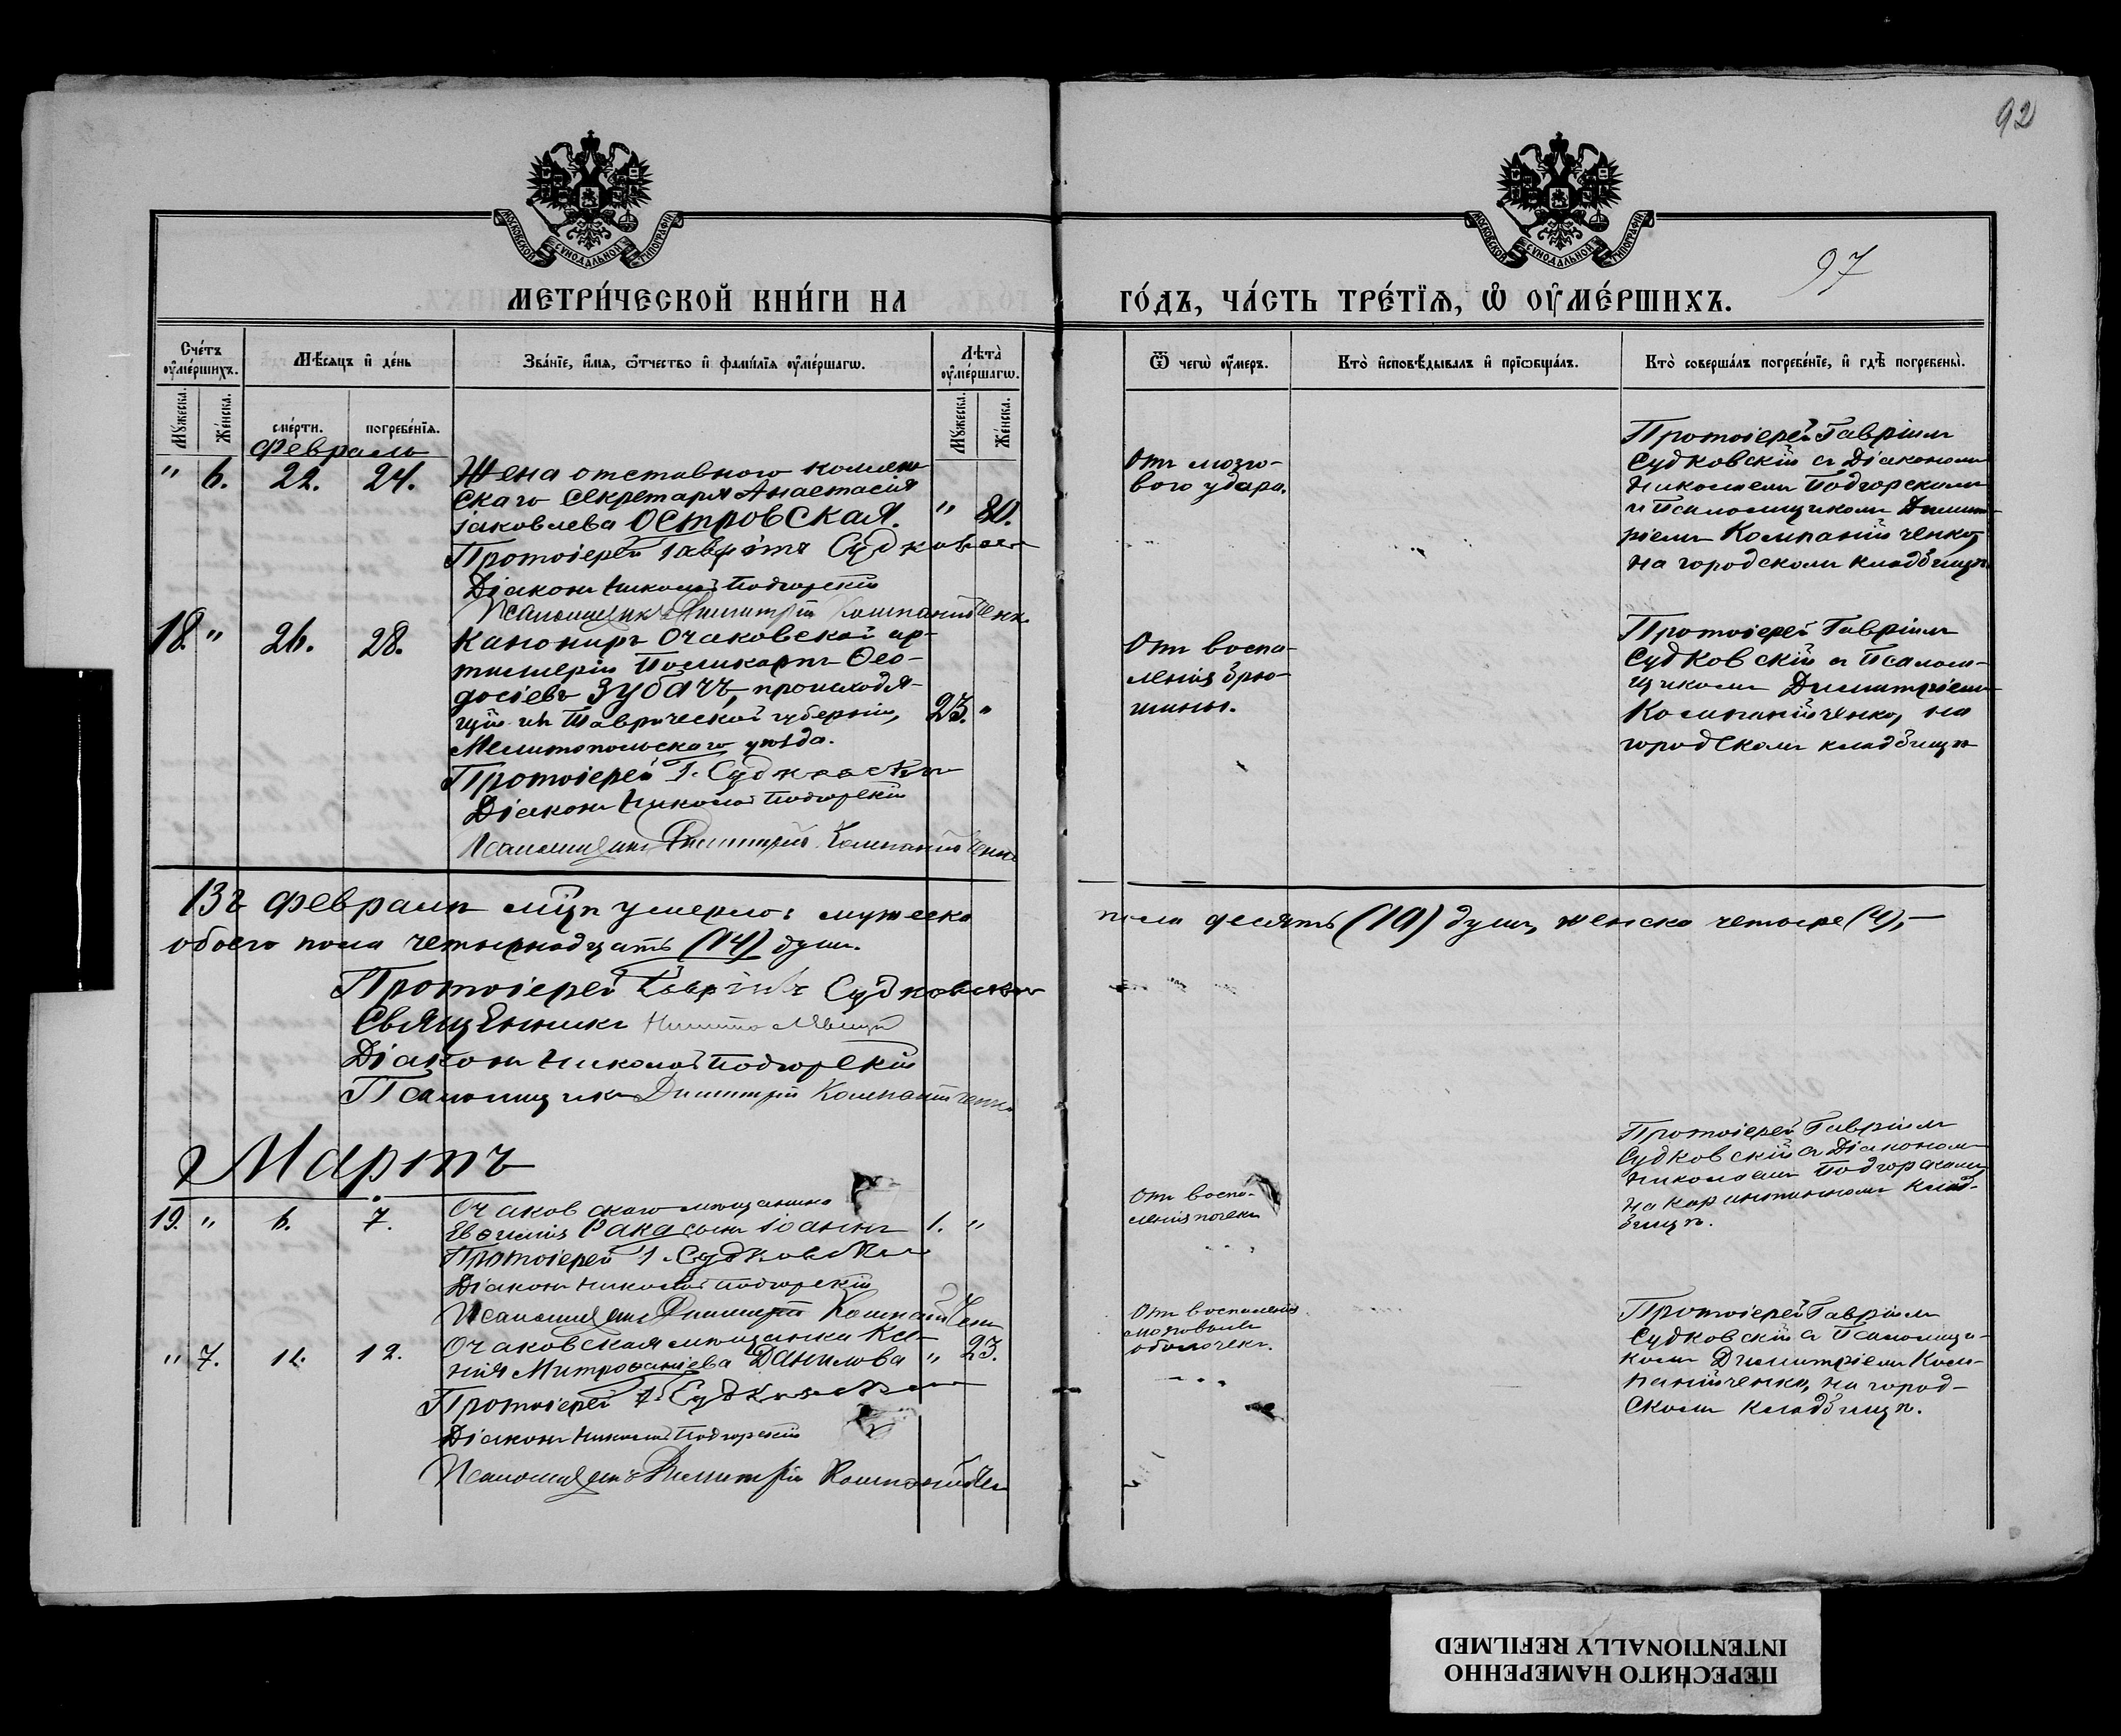 92
97
МОСКОВСКОЙ СѴНОДАЛЬНОЙ ТИПОГРАФІИ
МОСКОВСКОЙ СѴНОДАЛЬНОЙ ТИПОГРАФІИ
МЕТРИ́ЧЕСКОЙ КНИ́ГИ НА ГО́ДЪ, ЧА́СТЬ ТРЕ́ТЇѦ, Ѡ҆ ОУ҆МЕ́РШИХЪ.
Сче́тъ оу҆ме́ршихъ.
Мѣ́сѧцъ и҆ де́нь
Зва́нїе, и҆́мѧ, ѻ҆́тчество и҆ фами́лїѧ оу҆ме́ршагѡ.
Лѣ́та оу҆ме́ршагѡ.
Ѿ чегѡ̀ оу҆́меръ.
Кто̀ и҆сповѣ́дывалъ и҆ прїѡбща́лъ.
Кто̀ соверша́лъ погребе́нїе, и҆ гдѣ̀ погребены̀.
Мꙋ́жеска.
Же́нска.
сме́рти.
погребе́нїѧ.
Мꙋ́жеска.
Же́нска.
Февраль
" 6. 22. 24.
Жена отставного коллеж-
скаго Секретаря Анастасія
Іаковлева Островская. " 80.
Протоіерей Гавріилъ Судковскій
Діаконъ Николай Подгорскій
Псаломщикъ Димитрій Компанійченко
Отъ мозго-
вого удара.
Протоіерей Гавріилъ
Судковскій съ Діакономъ
Николаемъ Подгорскимъ
и Псаломщикомъ Димит-
ріемъ Компанійченко,
на городскомъ кладбищѣ
18. " 26. 28.
Канониръ Очаковской ар-
тиллеріи Поликарпъ Ѳео-
досіевъ Зубачъ, происходя-
щій изъ Таврической губерніи, 23. "
Мелитопольскаго уѣзда.
Протоіерей Г. Судковскій
Діаконъ Николай Подгорскій
Псаломщикъ Димитрій Компанійченко
Отъ воспа-
ленія брю-
шины.
Протоіерей Гавріилъ
Судковскій съ Псалом-
щикомъ Димитріемъ
Компанійченко, на
городскомъ кладбищѣ
Въ февралѣ мцѣ умерло: мужеска пола десять (10) душъ, женска четыре (4),
обоего пола четырнадцать (14) душъ.
Протоіерей Гавріилъ Судковскій
Священникъ
Діаконъ Николай Подгорскій
Псаломщикъ Димитрій Компанійченко
Мартъ
19. " 6. 7.
Очаковскаго мѣщанина
Евѳимія Рака сынъ Іоаннъ 1. "
Протоіерей Г. Судковскій
Діаконъ Николай Подгорскій
Псаломщикъ Димитрій Компанійченко
Отъ воспа-
ленія почекъ
Протоіерей Гавріилъ
Судковскій съ Діакономъ
Николаемъ Подгорскимъ,
на карантинномъ клад-
бищѣ.
" 7. 11. 12.
Очаковская мѣщанка Ксе-
нія Митрофаніева Данилова " 23.
Протоіерей Г. Судковскій
Діаконъ Николай Подгорскій
Псаломщикъ Димитрій Компанійчен
Отъ воспаленія
мозговыхъ
оболочекъ.
Протоіерей Гавріилъ
Судковскій съ Псаломщи-
комъ Димитріемъ Ком-
панійченко, на город-
скомъ кладбищѣ.
ПЕРЕСНЯТО НАМЕРЕННО
INTENTIONALLY REFILMED